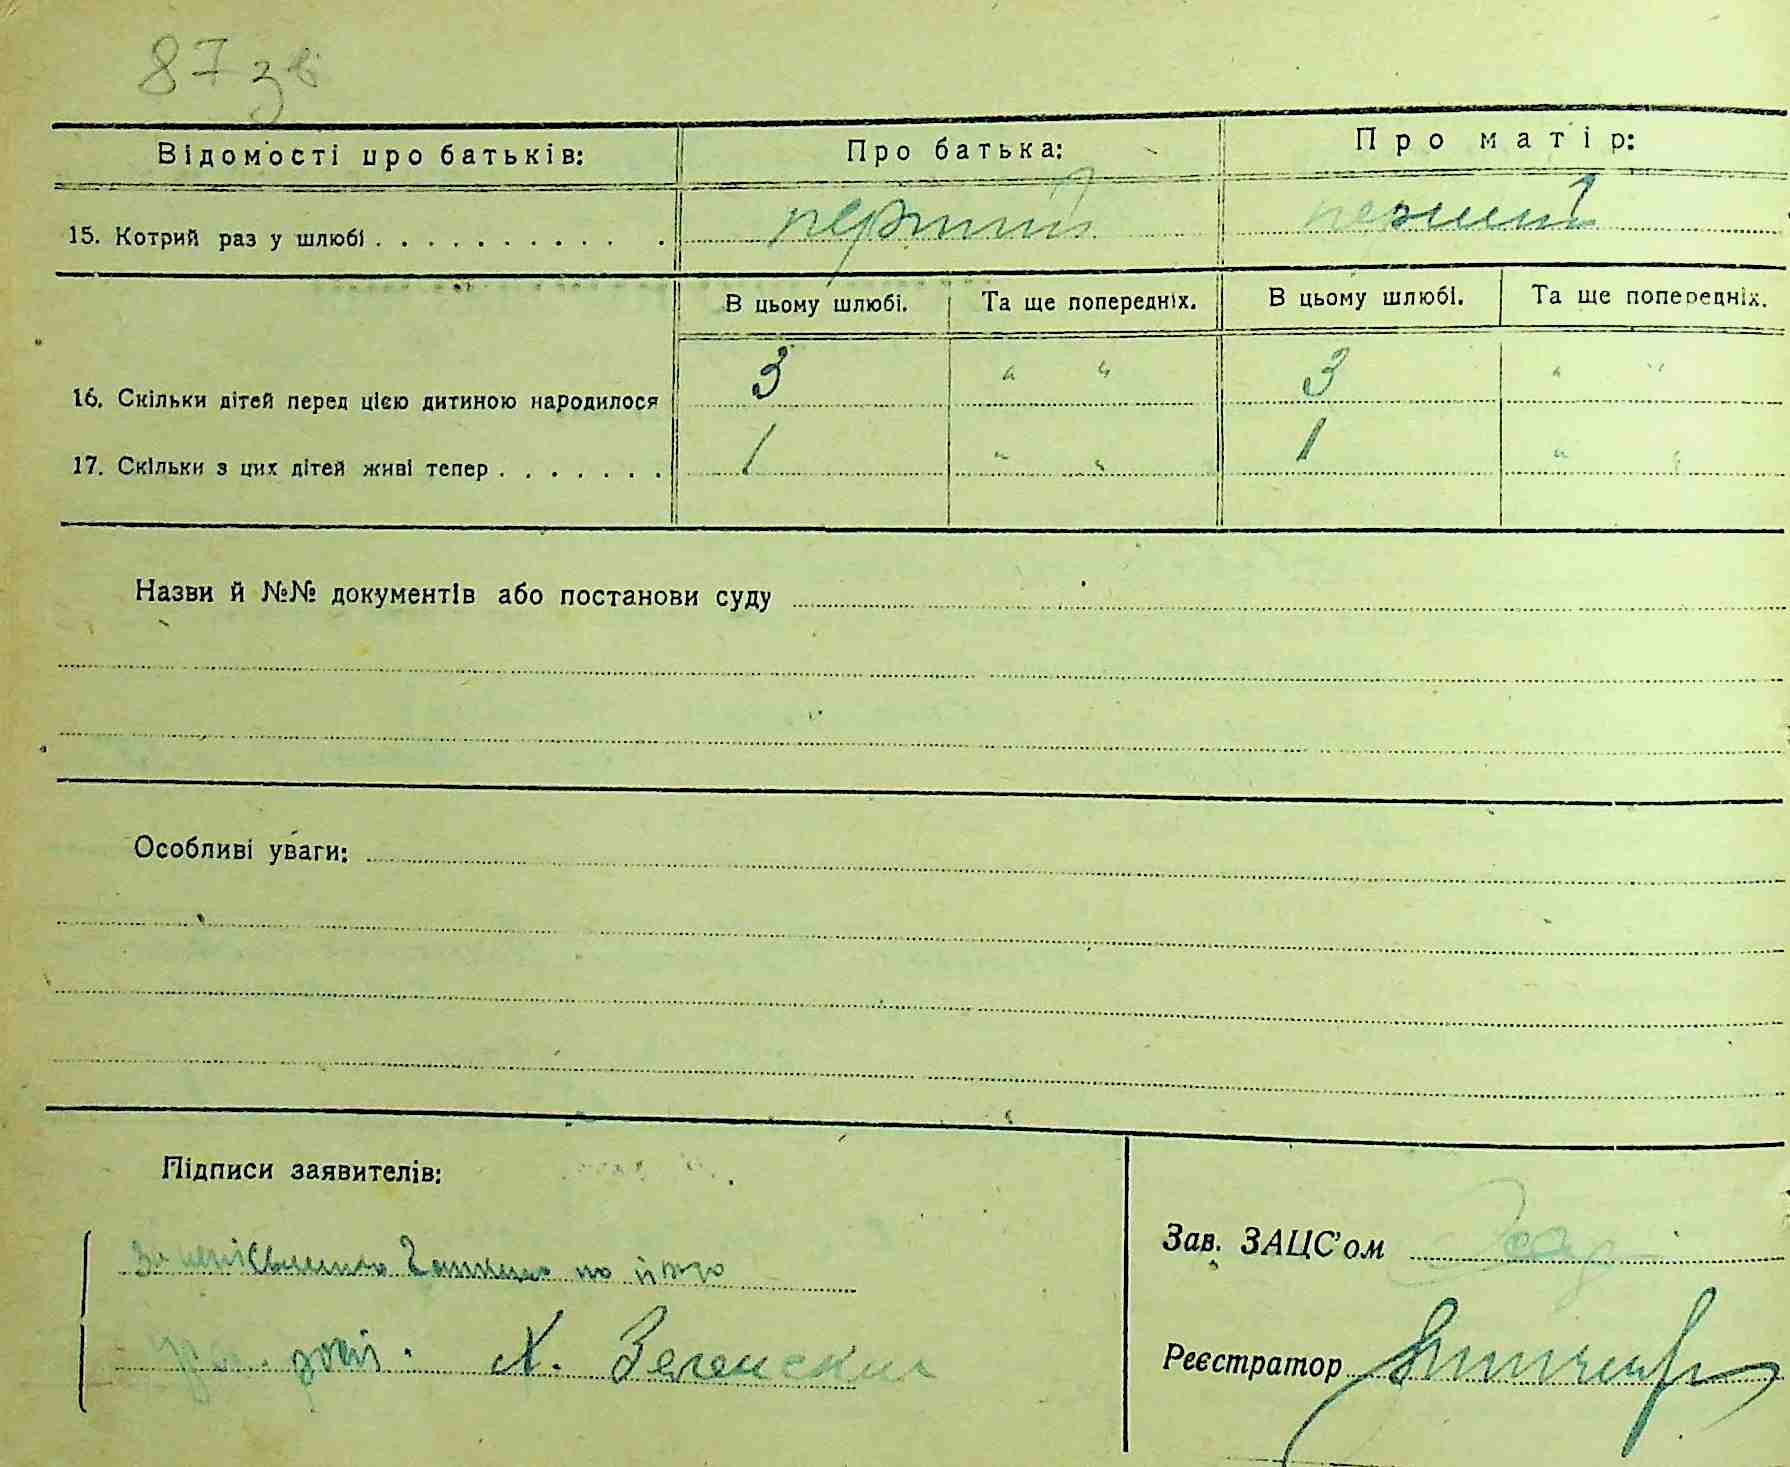 87 зв
Відомості про батьків: Про батька: Про матір:
15. Котрий раз у шлюбі . . . . . . . . . . . перший перший
В цьому шлюбі. Та ще попередніх. В цьому шлюбі. Та ще попередніх.
16. Скільки дітей перед цією дитиною народилося 3 " " 3 " "
17. Скільки з цих дітей живі тепер . . . . . . . 1 " " 1 " "
Назви й №№ документів або постанови суду
Особливі уваги:
Підписи заявителів:
Зав. ЗАЦС'ом
по його
Реєстратор
Х. Зеленский